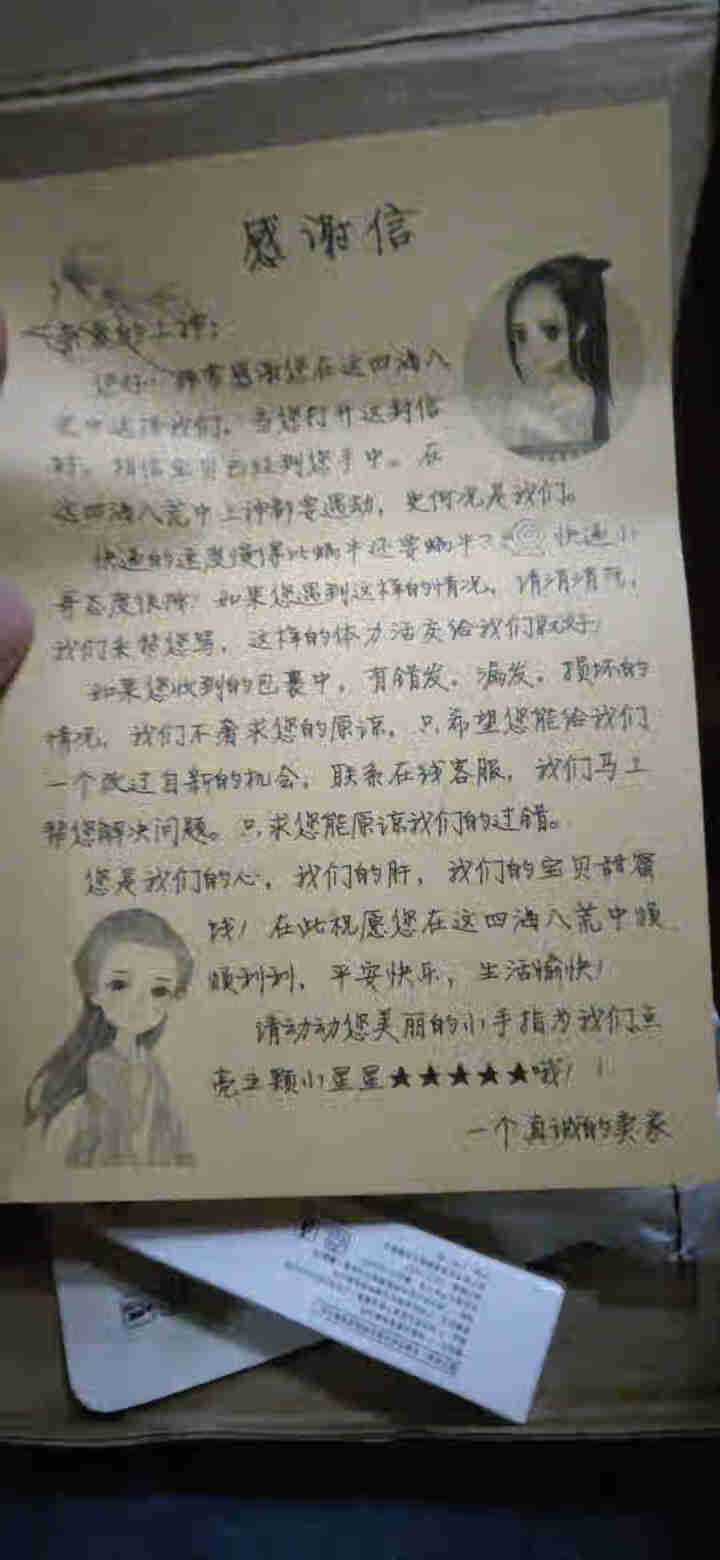 感谢信
亲爱的上神:
您好!非常感谢您在这四海八
荒中选择我们,当您打开这封信
时,相信宝贝已经到您手中。在
这四海八荒中上神都要遇劫,更何况是我们。
快递的速度慢得比蜗牛还要蜗牛?快递小
哥态度很 如果您遇到这样的情况,请消消气,
我们来帮您骂,这样的体力活交给我们就好!
如果您收到的包裹中,有错发、漏发、损坏的
情况,我们不奢求您的原谅,只希望您能给我们
一个改过自新的机会,联系在线客服,我们马上
帮您解决问题。只求您能原谅我们的过错。
您是我们的心,我们的肝,我们的宝贝甜蜜
饯!在此祝愿您在这四海八荒中顺
顺利利,平安快乐,生活愉快!
请动动您美丽的小手指为我们点
亮五颗小星星★★★★★哦!!
一个真诚的卖家